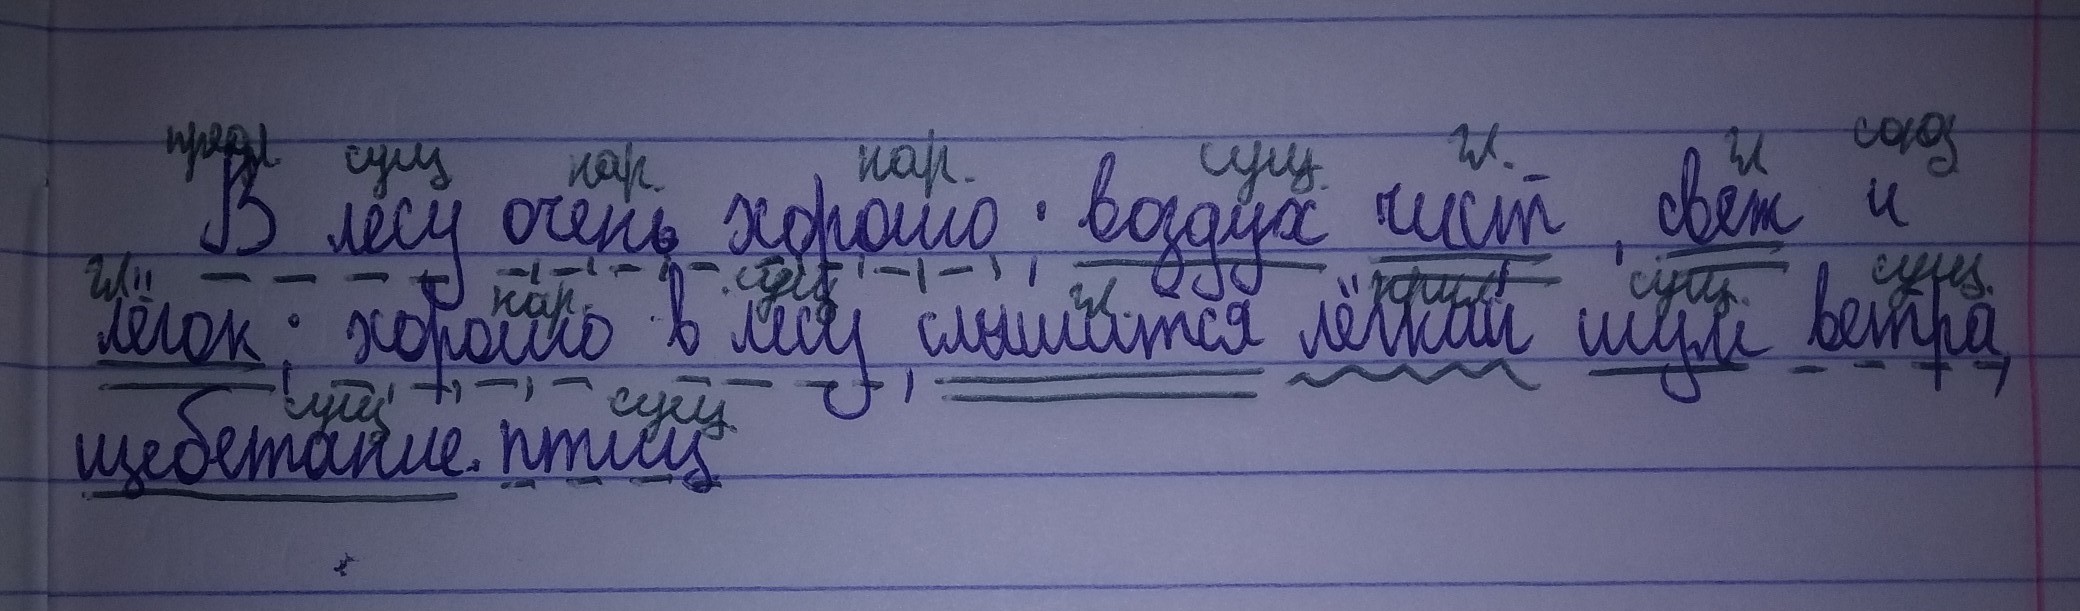 предл. сущ нар. нар. сущ. гл. гл союз
В лесу очень хорошо : воздух чист , свеж и
гл. нар. сущ гл. прил. сущ. сущ.
лёгок ; хорошо в лесу , слышится лёгкий шум ветра,
сущ сущ.
щебетание птиц